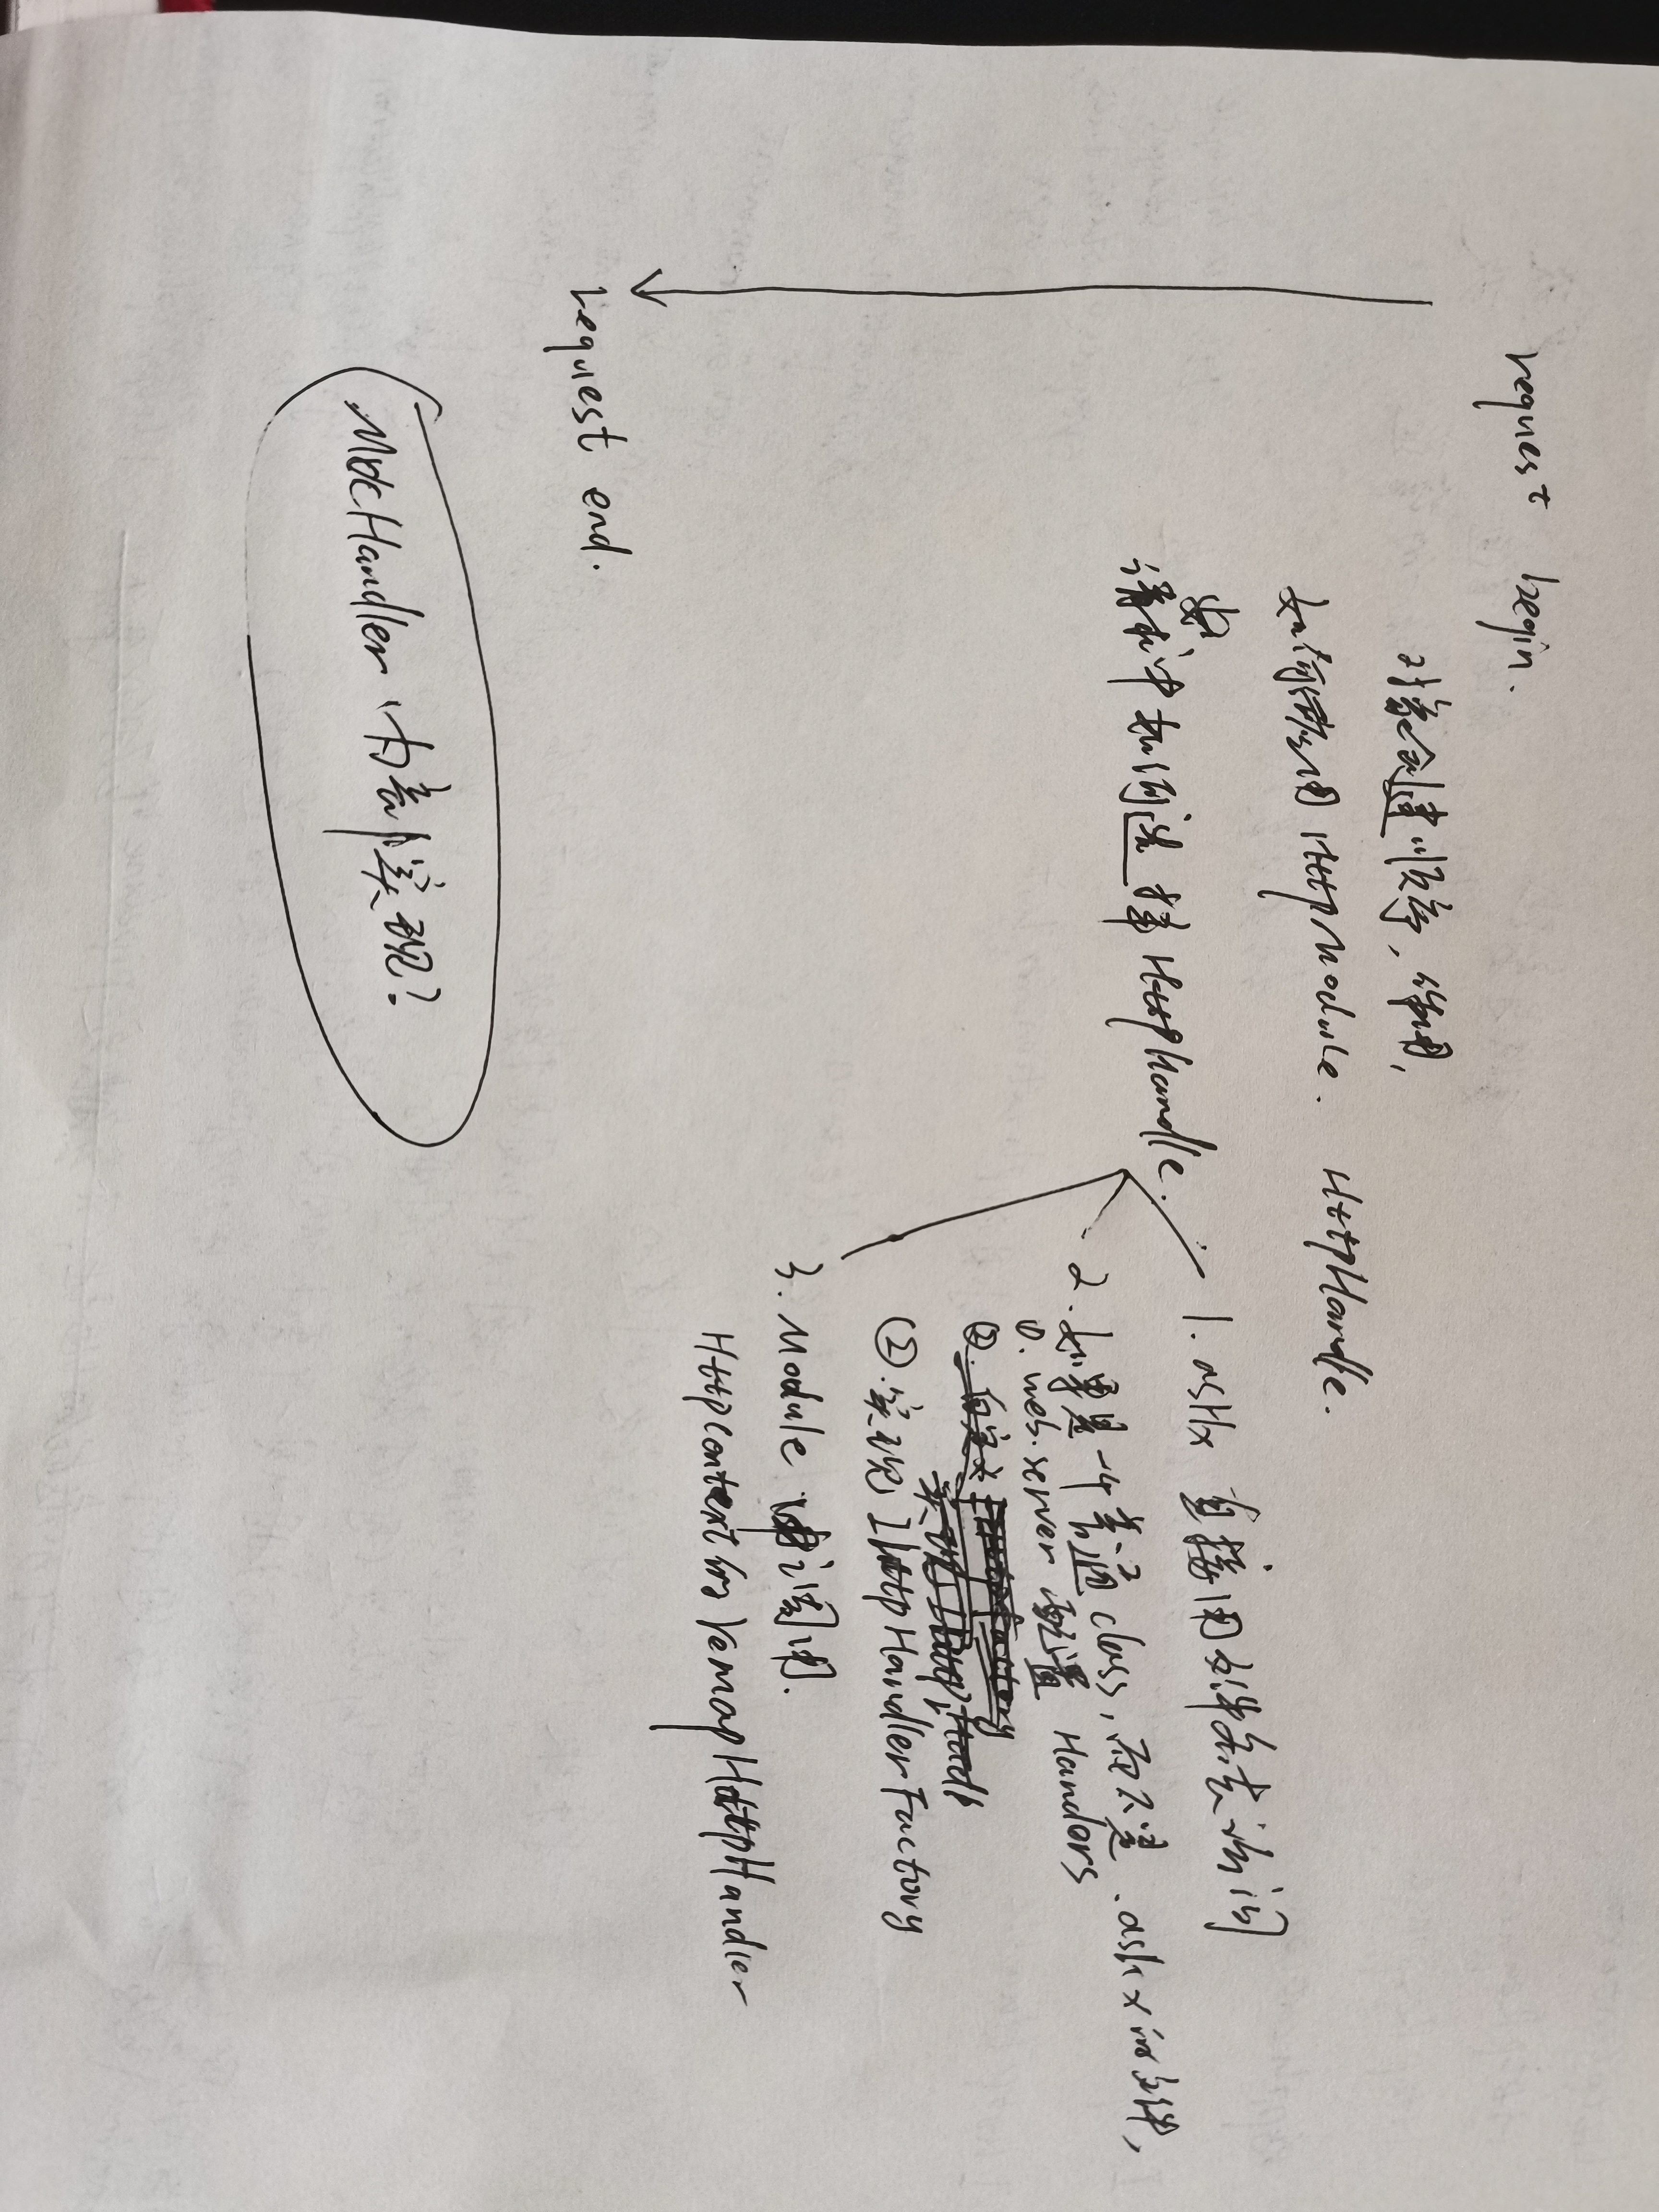 request begin.
对象创建顺序，作用，
如何使用 HttpModule. HttpHandle.
请求中如何选择 HttpHandle.
1. ashx 直接用文件方式访问
2. 如果是一个普通 class，而不是 .ashx 的文件，
①. web.server 配置 Handlers
②. 自定义
实现 IHttpHandle
②. 实现 IHttpHandlerFactory
3. Module 中调用.
HttpContext的 remapHttpHandler
request end.
MvcHandler 内部实现？